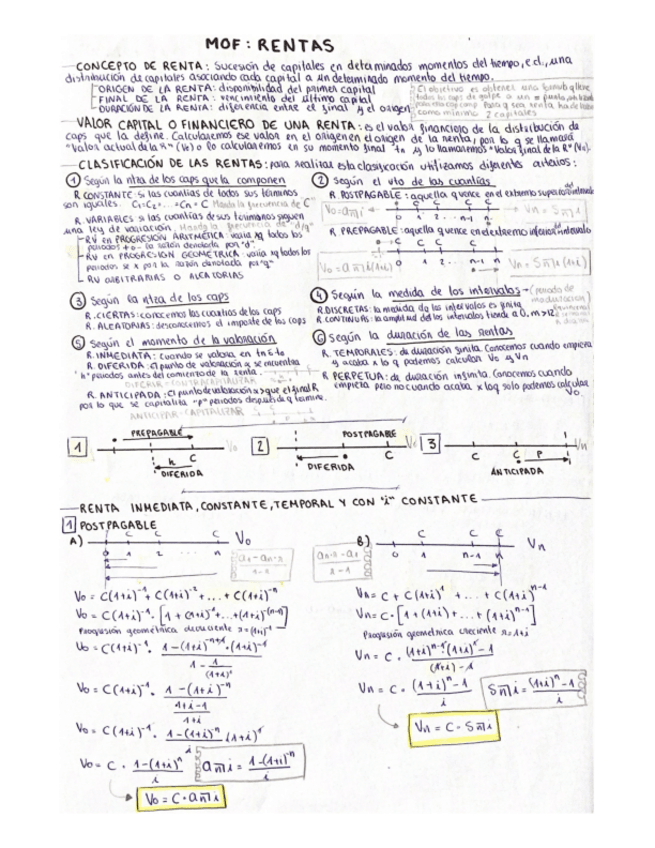 MOF: RENTAS
CONCEPTO DE RENTA: Sucesión de capitales en determinados momentos del tiempo, e.d., una
distribución de capitales asociando cada capital a un determinado momento del tiempo.
ORIGEN DE LA RENTA: disponibilidad del primer capital
FINAL DE LA RENTA: vencimiento del último capital
DURACIÓN DE LA RENTA: diferencia entre el final y el origen
El objetivo es obtener una
como mínimo 2 capitales
VALOR CAPITAL O FINANCIERO DE UNA RENTA: es el valor financiero de la distribución de
caps que la define. Calcularemos ese valor en el origen de la renta, por lo q se llamará
"Valor actual de la R" (V0) o lo calcularemos en su momento final tn y lo llamaremos "Valor final de la R" (Vn).
CLASIFICACIÓN DE LAS RENTAS: para realizar esta clasificación utilizamos diferentes criterios:
① Según la ntza de los caps que la componen
R. CONSTANTE: si las cuantías de todos sus términos
son iguales. C1=C2=...=Cn=C
R. VARIABLES: si las cuantías de sus términos siguen
una ley de variación.
RV en PROGRESIÓN ARITMÉTICA: varía xq todos los
periodos + o - la razón denotada por "d".
RV en PROGRESIÓN GEOMÉTRICA: varía xq todos los
periodos se x por la razón denotada por "q"
RV ARBITRARIAS O ALEATORIAS
② Según el vto de las cuantías.
R. POSTPAGABLE: aquella q vence en el extremo superior del intervalo
V0 = an̅|i
C C C C
0 1 2 ... n-1 n
Vn = Sn̅|i
R. PREPAGABLE: aquella q vence en el extremo inferior del intervalo
C C C C
0 1 2 n-1 n
V0 = an̅|i(1+i)
Vn = Sn̅|i(1+i)
③ Según la ntza de los caps
R. CIERTAS: conocemos las cuantías de los caps
R. ALEATORIAS: desconocemos el importe de los caps
④ Según la medida de los intervalos → (periodo de
R. DISCRETAS: la medida de los intervalos es finita
R. CONTINUAS: la amplitud del los intervalos tiende a 0. m>12
⑤ Según el momento de la valoración
R. INMEDIATA: cuando se valora en tn ó to
R. DIFERIDA: el punto de valoración α se encuentra
"h" periodos antes del comienzo de la renta.
DIFERIR - CONTRACAPITALIZAR
R. ANTICIPADA: el punto de valoración α > que el final R
por lo que se capitaliza "p" periodos después de q termine.
ANTICIPAR - CAPITALIZAR
⑥ Según la duración de las rentas
R. TEMPORALES: de duración finita. Conocemos cuando empieza
y acaba x lo q podemos calcular V0 y Vn
R. PERPETUA: de duración infinita. Conocemos cuando
empieza pero no cuando acaba x loq solo podemos calcular
V0
1 PREPAGABLE V0
h C
DIFERIDA
2 POSTPAGABLE V0
C
DIFERIDA
3 Vn
C C P
ANTICIPADA
RENTA INMEDIATA, CONSTANTE, TEMPORAL Y CON "i" CONSTANTE
1 POSTPAGABLE
A) C C C V0
0 1 2 ... n
V0 = C(1+i)^-1 + C(1+i)^-2 + ... + C(1+i)^-n
V0 = C(1+i)^-1 · [1 + (1+i)^-1 + ... + (1+i)^-(n-1)]
Progresión geométrica decreciente r=(1+i)^-1
V0 = C(1+i)^-1 · 1-(1+i)^-n+1 · (1+i)^-1 / 1 - 1/(1+i)
V0 = C(1+i)^-1 · 1-(1+i)^-n / 1+i-1 / 1+i
V0 = C(1+i)^-1 · 1-(1+i)^-n / i (1+i)^1
V0 = C · 1-(1+i)^-n / i
an̅|i = 1-(1+i)^-n / i
V0 = C · an̅|i
B) C C C Vn
0 1 n-1 n
Vn = C + C(1+i)^1 + ... + C(1+i)^n-1
Vn = C · [1 + (1+i) + ... + (1+i)^n-1]
Progresión geométrica creciente r=1+i
Vn = C · (1+i)^n-1 (1+i)^1 - 1 / (1+i) - 1
Vn = C · (1+i)^n - 1 / i
Sn̅|i = (1+i)^n - 1 / i
Vn = C · Sn̅|i